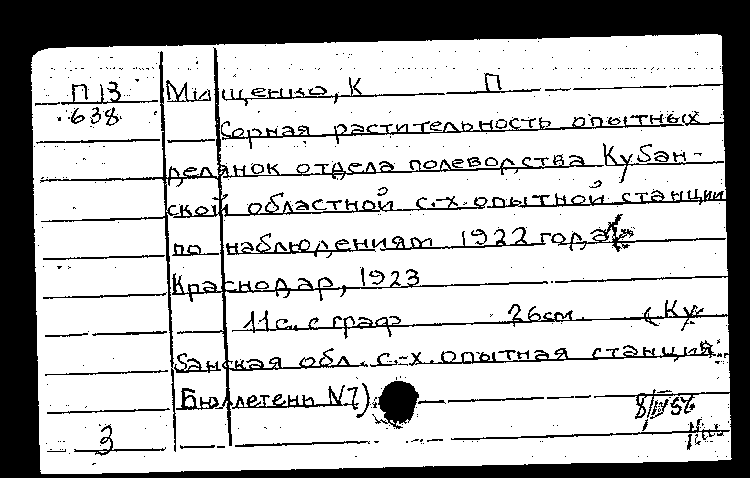 П 13 Мищенко, К П
638
Сорная растительность опытных
делянок отдела полеводства Кубан-
ской областной с.-х. опытной станции
по наблюдениям 1922 года
Краснодар, 1923
11с. с граф 26см. (Ку
банская обл. с.-х. опытная станция.
Бюллетень N7)
8/IV 56
3